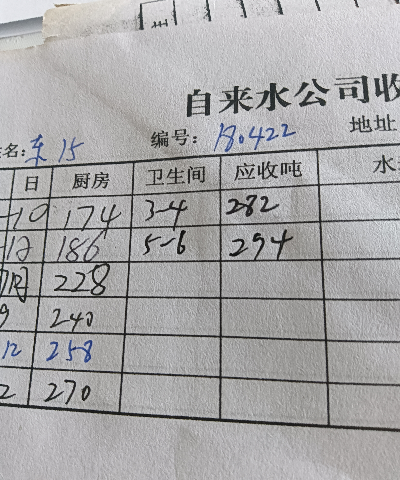 州
自来水公司收
姓名: 东 15 编号: 180422 地址
日 厨房 卫生间 应收吨 水
10 174 3-4 282
12 186 5-6 294
7月 228
9 240
12 258
2 270